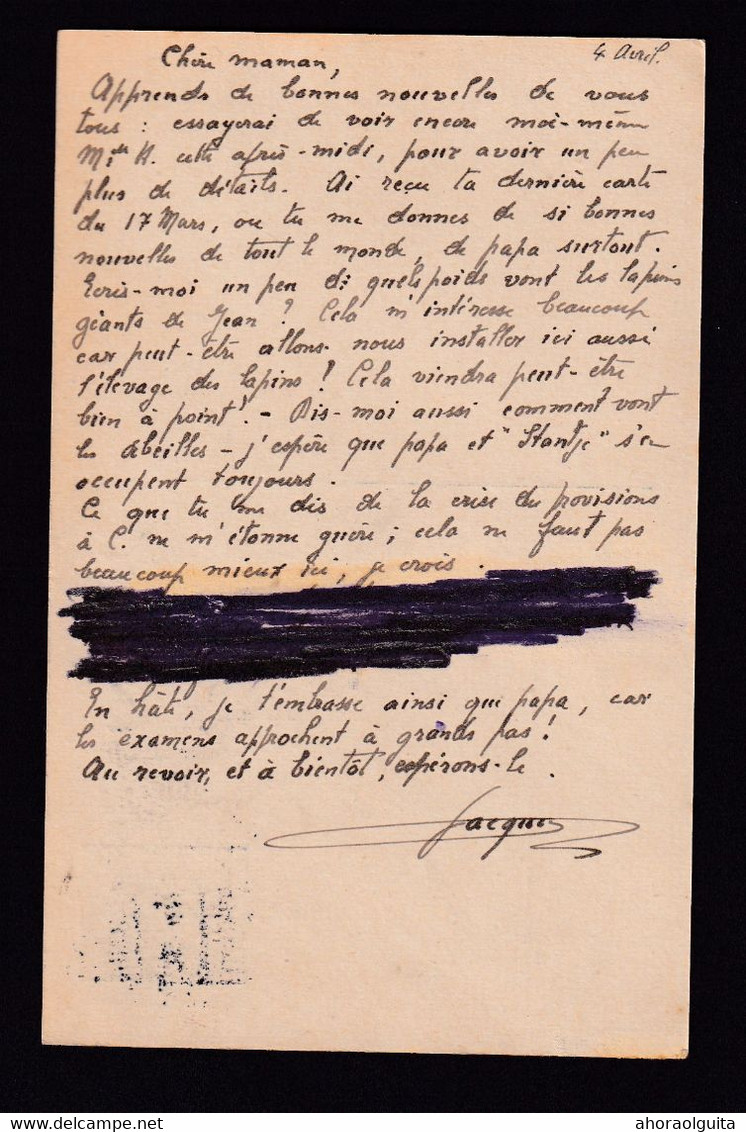 4 Avril.
Chère maman,
Apprends de bonnes nouvelles de vous
tous : essayerai de voir encore moi-même
Mlle H. cette après-midi, pour avoir un peu
plus de détails. Ai reçu ta dernière carte
du 17 Mars, ou tu me donnes de si bonnes
nouvelles de tout le monde, de papa surtout.
Ecris-moi un peu de quels poids vont les lapins
géants de Jean ? Cela m'intéresse beaucoup
car peut-être allons-nous installer ici aussi
l'élevage des lapins ! Cela viendra peut-être
bien à point ! - Dis-moi aussi comment vont
les abeilles - j'espère que papa et "Stantje" s'en
occupent toujours.
Ce que tu me dis de la crise du provisions
à C. ne m'étonne guère ; cela ne faut pas
beaucoup mieux ici, je crois.
En hâte, je t'embrasse ainsi que papa, car
les examens approchent à grands pas !
Au revoir, et à bientôt, espérons-le.
Jacques
ahoraolguita